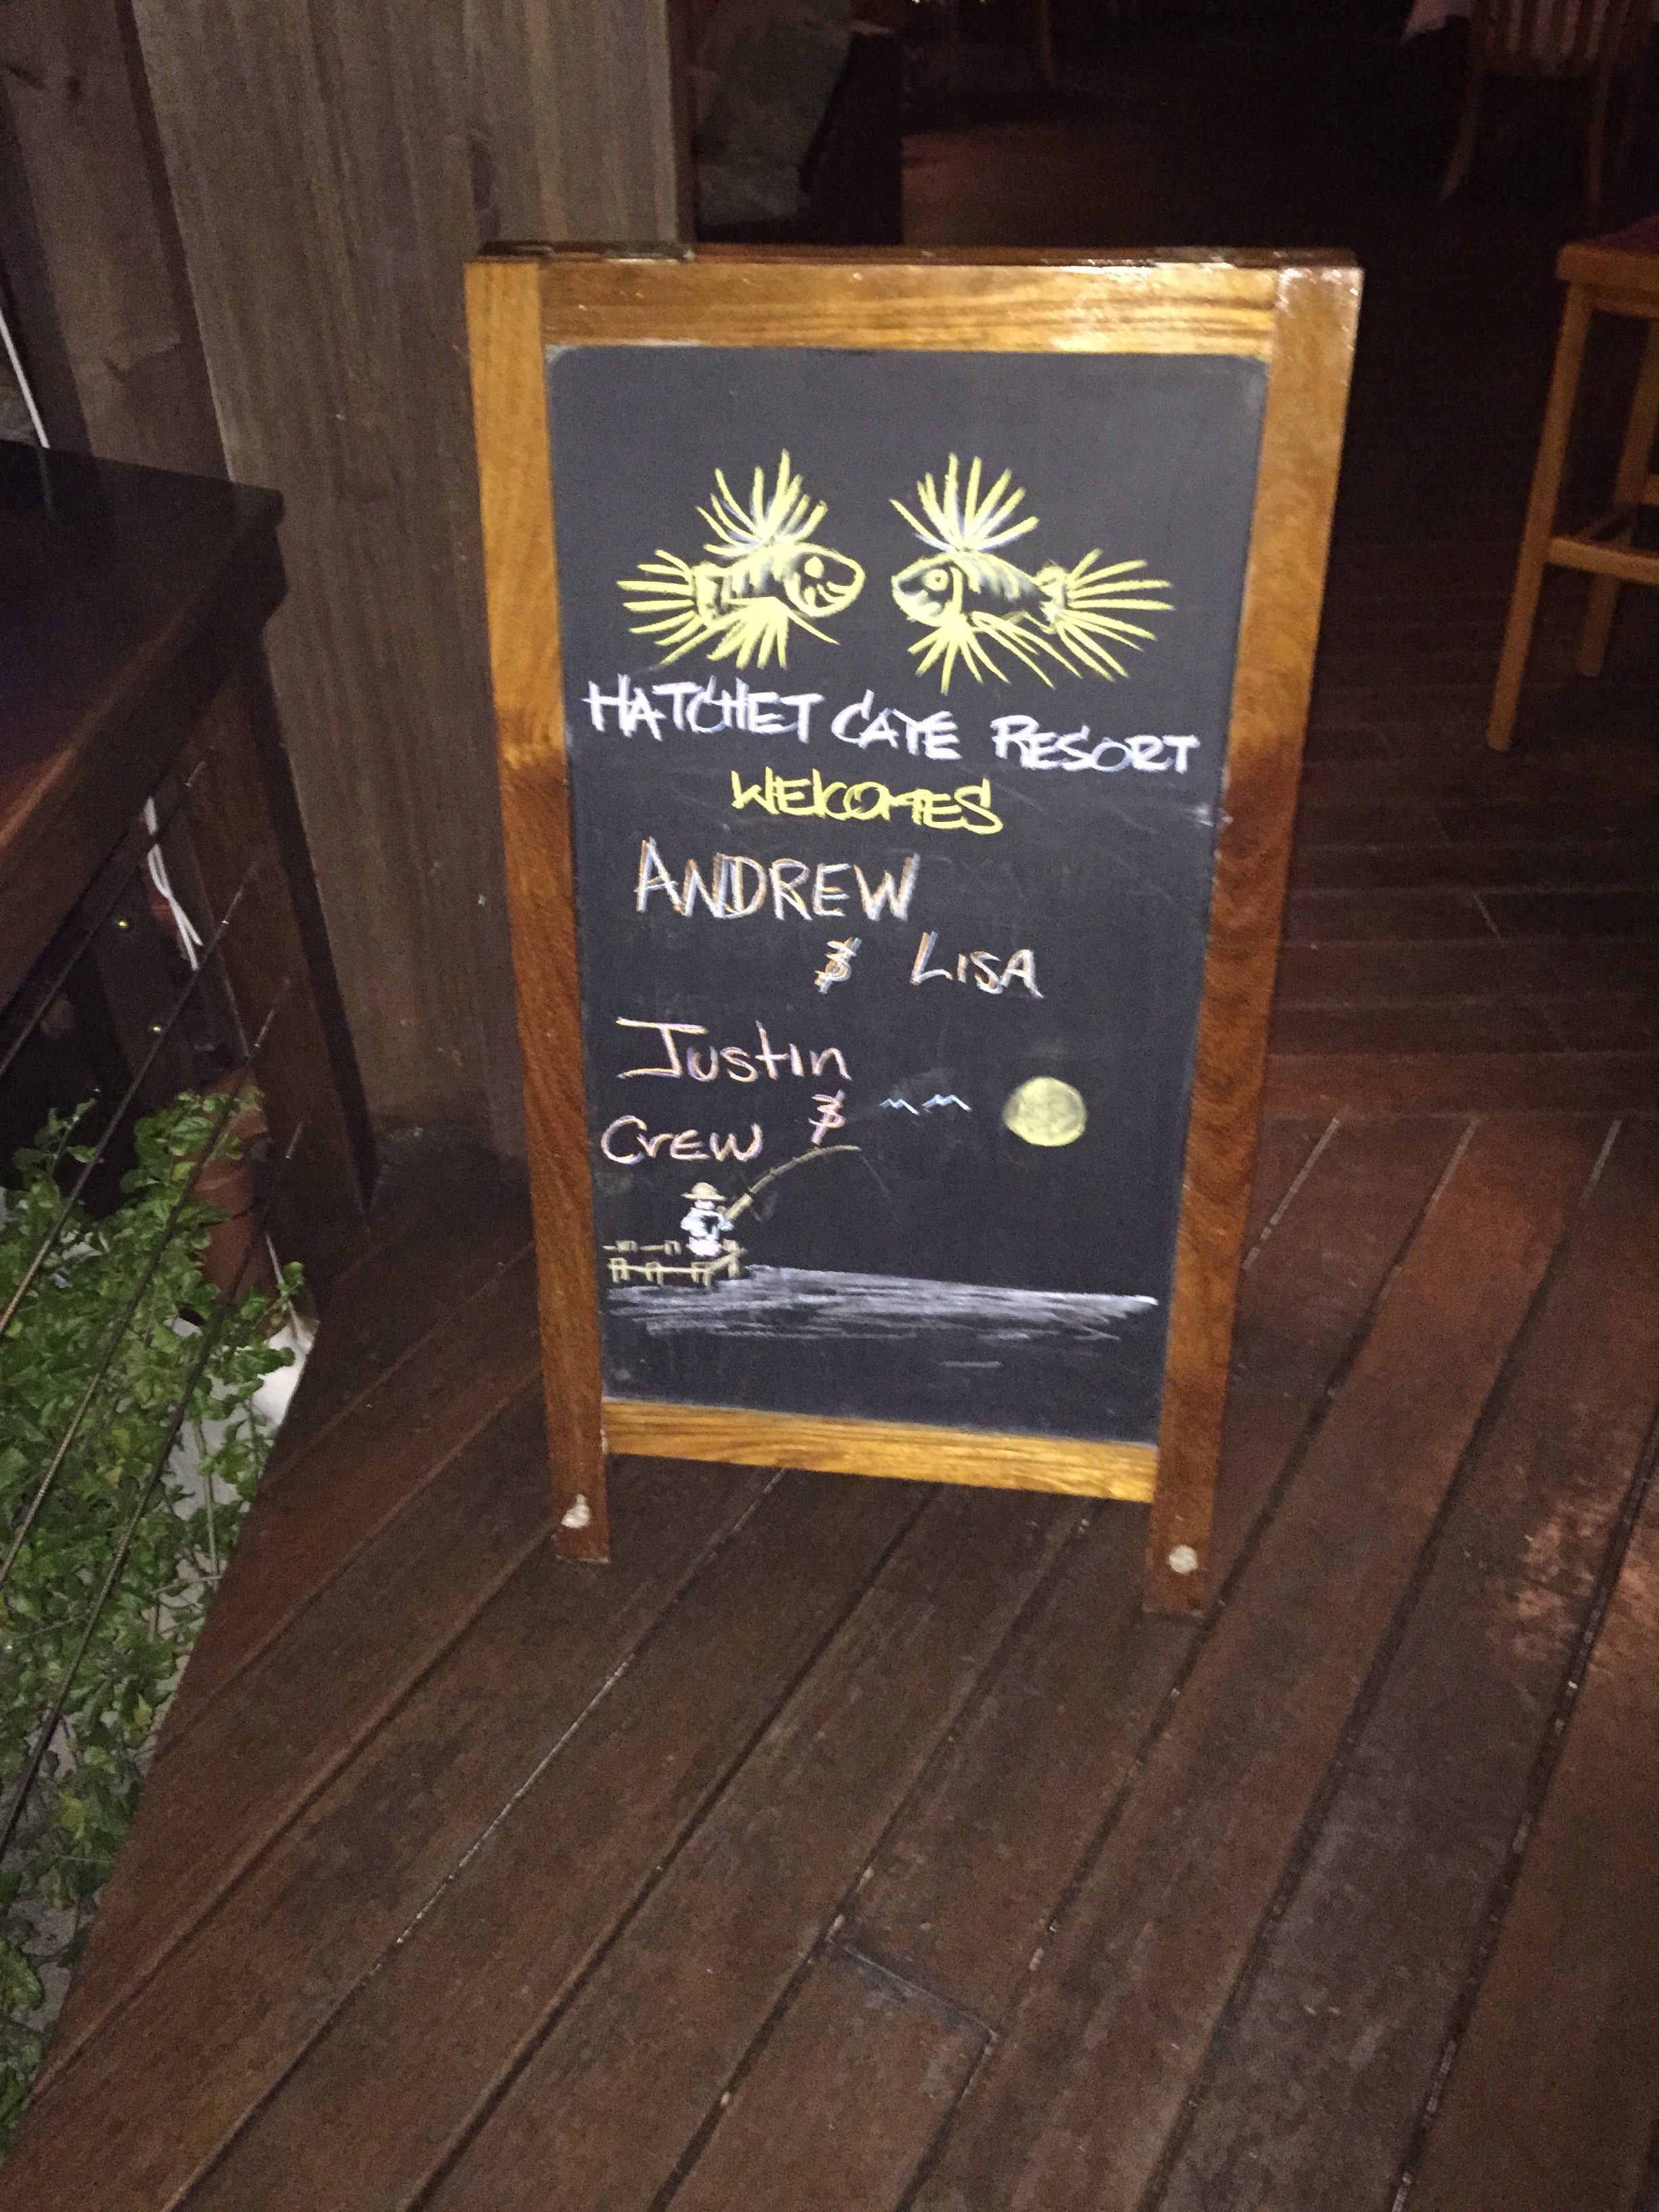 HATCHET CAYE RESORT
WELCOMES
ANDREW
& LISA
Justin
&
CREW